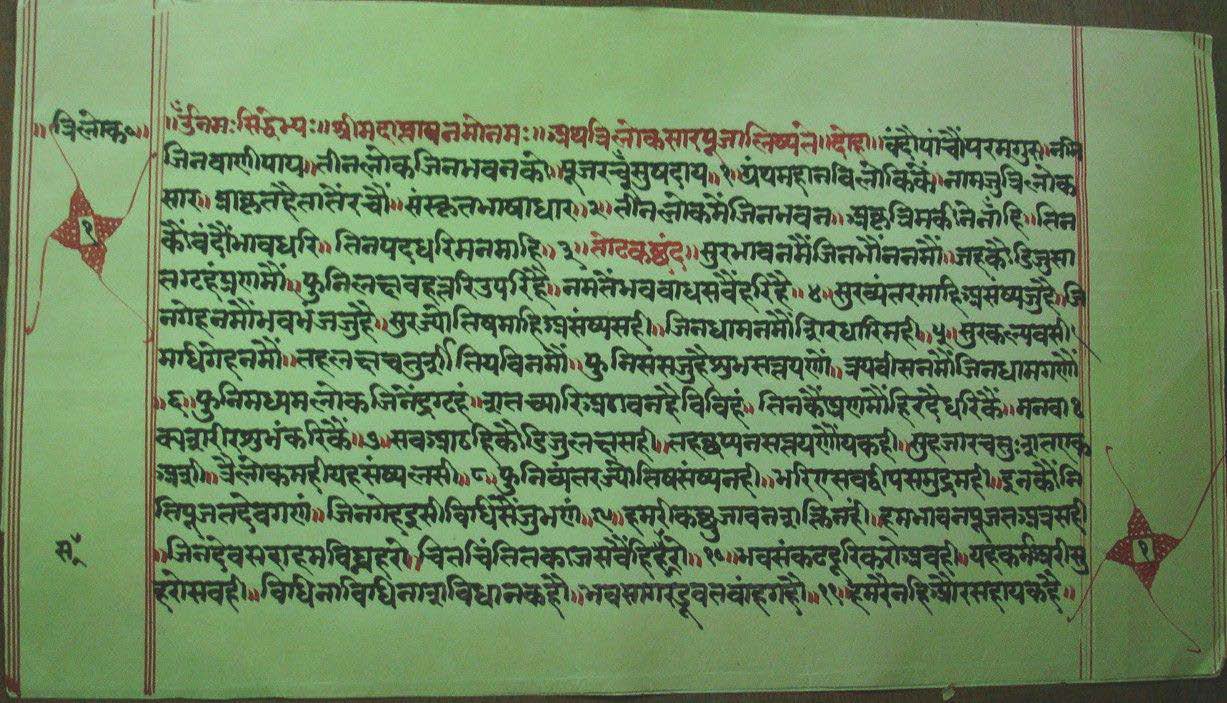 ॥त्रिलोक॰॥
॥ॐनमः सिद्धेभ्यः॥श्रीमदाप्तायनमोनमः॥अथत्रिलोकसारपूजालिष्यते॥दोहा॥वंदौंपांचौंपरमगुरु॥नमि
जिनवाणीपाय॥तीनलोकजिनभवनकी॥पूजरचूँसुषदाय॥१॥ग्रंथमहानविलोकिकैं॥नामजुत्रिलोक
सार॥प्राकृतहैतातेंरचौं॥संस्कृतभाषाधार॥२॥तीनलोकमैंजिनभवन॥अकृत्रिमकीर्तनाँहि॥तिन
कौंवंदौंभावधरि॥तिनपदधरिमनमाहि॥३॥तोटकछंद॥सुरभावनमैंजिनभौननमौं॥जहकोडिजुसा
तगटहप्रणमौं॥फुनिलक्षवहत्तरिउपरिहै॥नमतैंभवबाधसवैंहरिहै॥४॥सुरव्यंतरमाहिअसंष्यजुहै॥जि
नगेहनमौंभवभंजजुहै॥सुरज्योतिषमाहिअसंष्यसही॥जिनधामनमौंशिरधारिमही॥५॥सुरकल्पवसी॥
मधिगेहनमौं॥लहलक्षचतुर्शीतियविनमौं॥फुनिसंसजुहैशुभसत्तणणौं॥त्रयवीसनमौंजिनधामगणौं
॥६॥फुनिमध्यमलोकजिनेंद्रगटहं॥शतच्यारिअठावनहैविविहं॥तिनकौंप्रणमौंहिरदैधरिकैं॥मनवा१
कशरीरशुभंकरिकैं॥७॥सवआठहिकोडिजुलक्षसही॥लहछप्पनसत्तणणौंयकही॥सुहजारचतुःशतएक
असी॥त्रैलोकमहीयहसंष्यलसी॥८॥फुनिव्यंतरज्योतिषसंष्यनही॥भरिएसवद्वीपसमुद्रमही॥इनकौंनि
तिपूजतदेवगणं॥जिनगेहइसीविधिसैंजुभणं॥९॥हमरीकछुजावनशक्तिनहीं॥हमभावनपूजतअत्रसही
॥जिनदेवसदाहमविघ्नहरो॥चितचिंतितकाजसवैंहिकरो॥१०॥भवसंकटदूरिकरोअवही॥यहकर्मअरीसु
हरोसवही॥विधिनाविधिनाशविधानकहौ॥भवसागरडूवतवांहगहौ॥११॥हमरैनहिऔरसहायकहै॥
१
१